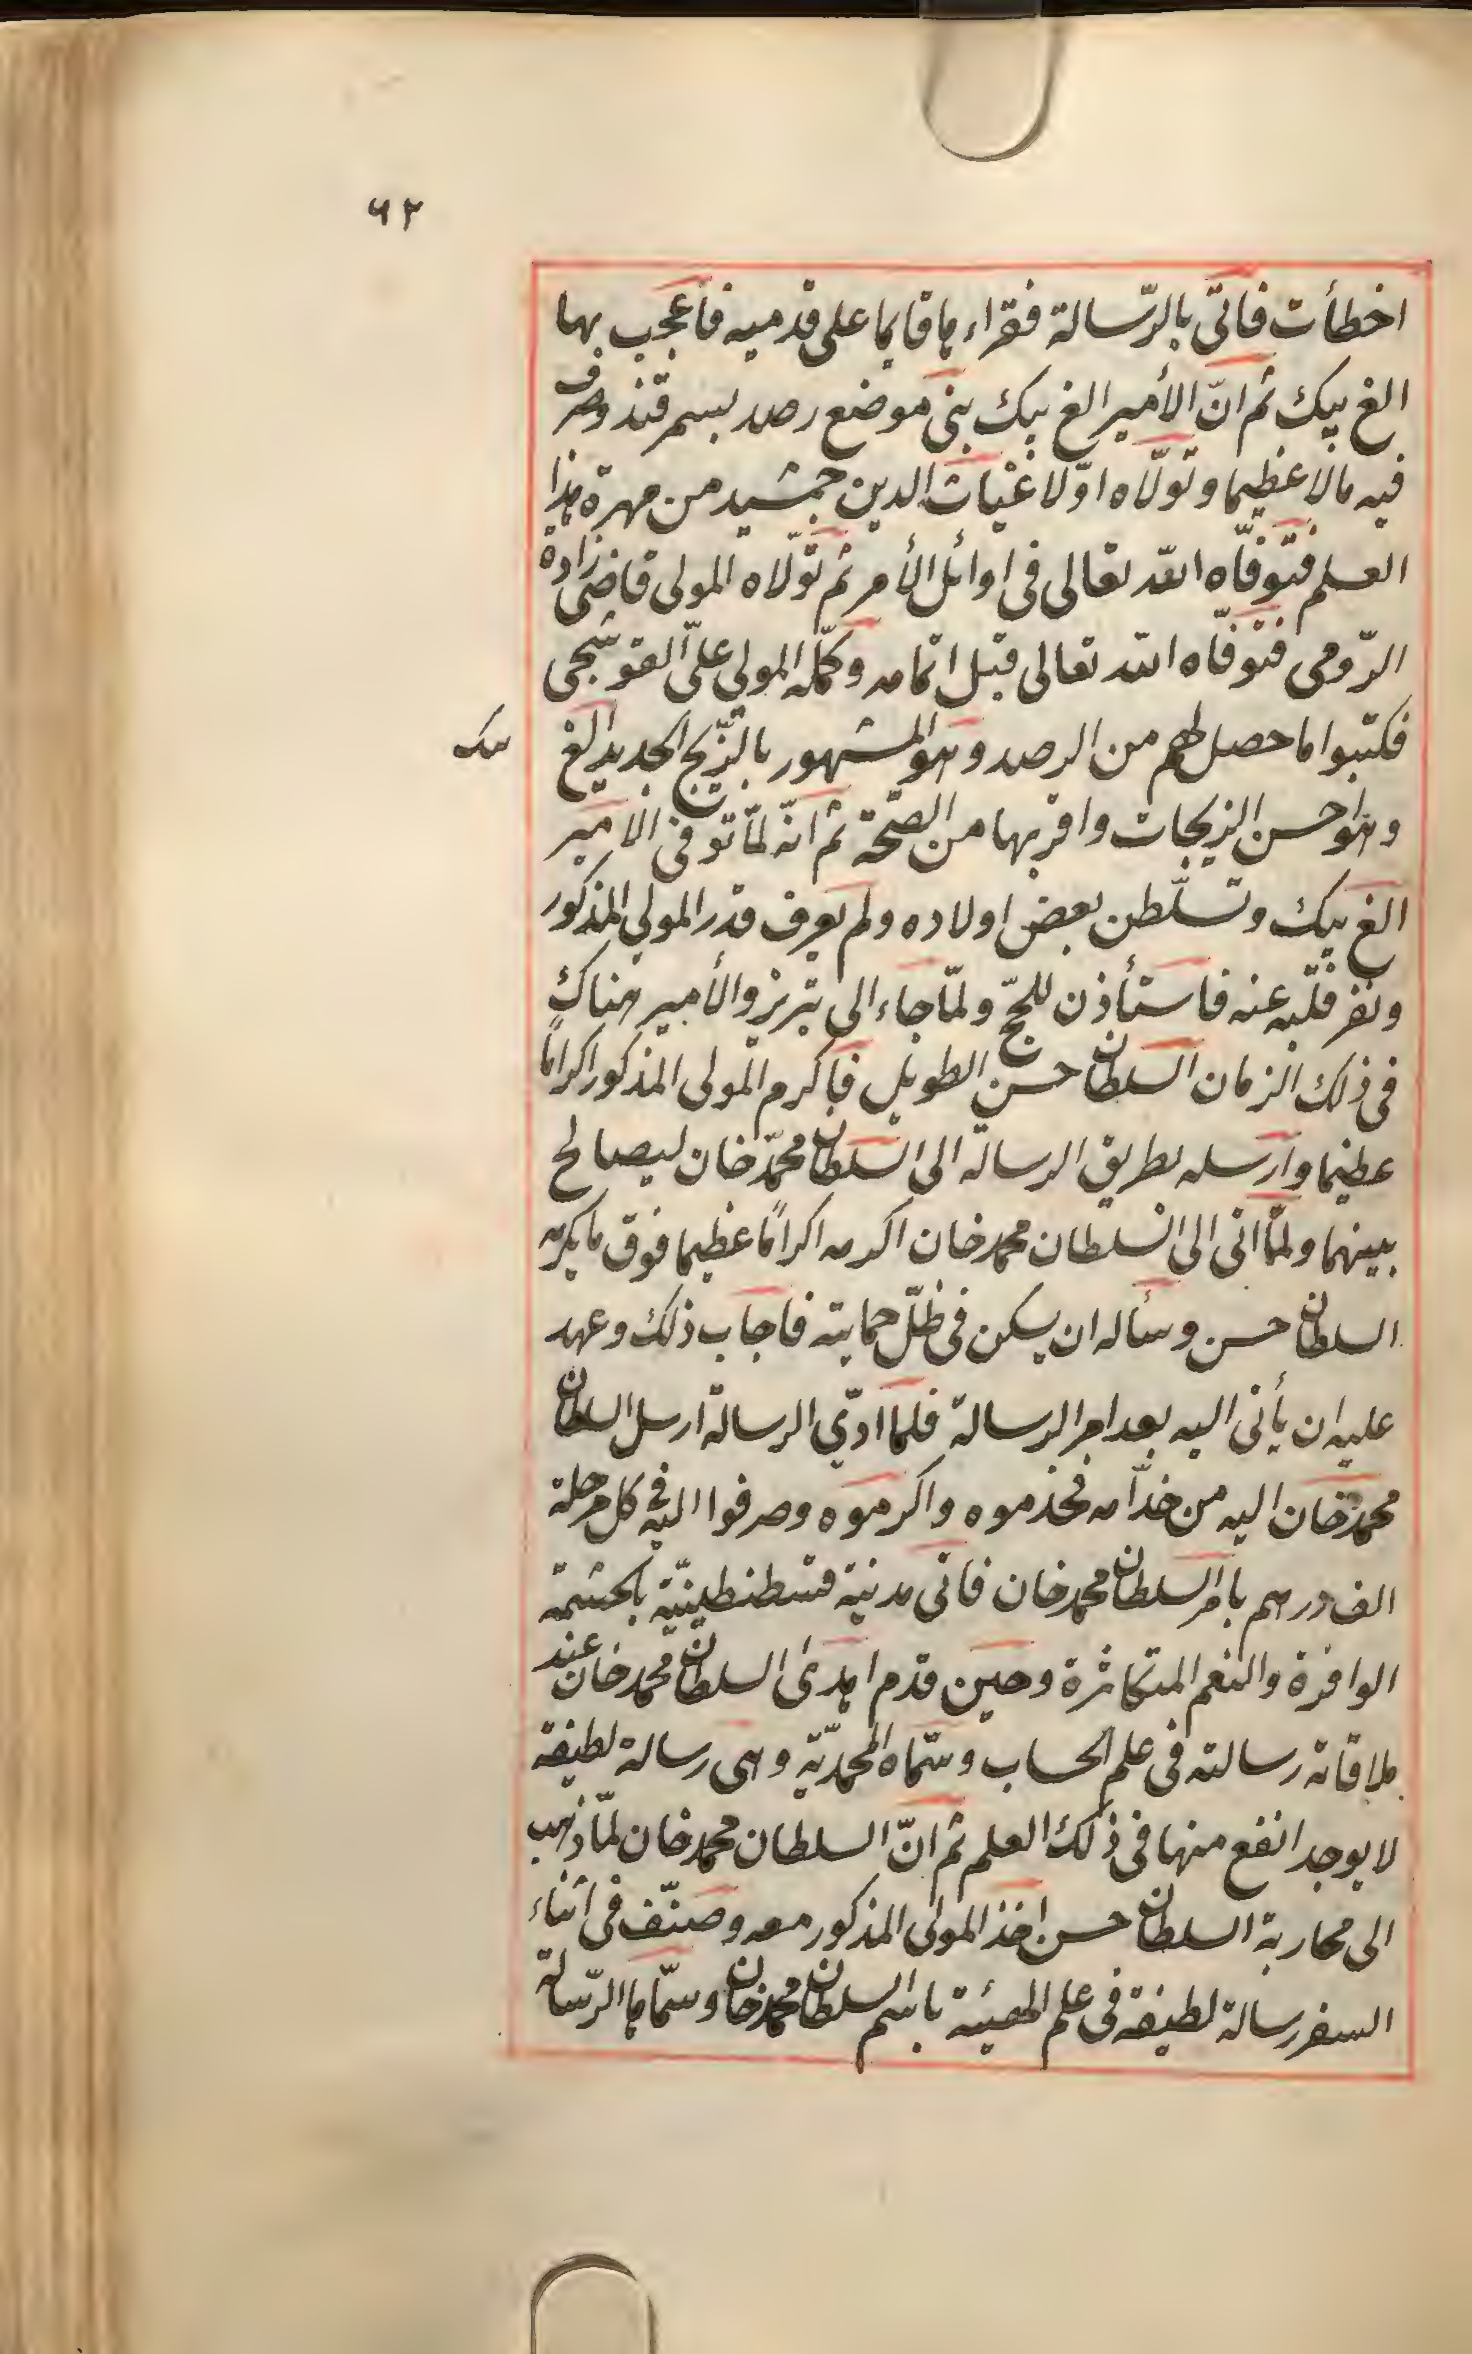 ٦٢
اخطأت فاتى بالرّسالة فقراءها قايما على قدميه فاعجب بها
الغ بيك ثم انّ الأمير الغ بيك بنى موضع رصد بسمرقند وصرف
فيه مالا عظيما وتولّاه اوّلا غياث الدين جمشيد من مهرة هذا
العلم فتوفّاه الله تعالى فى اوائل الأمر ثم تولّاه المولى قاضى زاده
الرّومى فتوفّاه الله تعالى قبل اتمامه وكمّله المولى علىّ القوشجى
فكتبوا ما حصل لهم من الرصد وهو المشهور بالزّيج الجديد الغ بيك
وهو احسن الزيجات واقربها من الصّحّة ثم انّه لمّا توفى الامير
الغ بيك وتسلّطن بعض اولاده ولم يعرف قدر المولى المذكور
ونفر قلبه عنه فاستأذن للحجّ ولمّا جاء الى تبريز والأمير هناك
فى ذلك الزمان السلطان حسن الطويل فاكرم المولى المذكور اكرامًا
عظيما وارسله بطريق الرسالة الى السلطان محمّد خان ليصالح
بينهما ولمّا اتى الى السلطان محمد خان اكرمه اكرامًا عظيما فوق ما يكرمه
السلطان حسن وسأله ان يسكن فى ظلّ حمايته فاجاب ذلك وعهد
عليه ان يأتى اليه بعد امر الرسالة فلما ادّى الرسالة ارسل السلطان
محمد خان اليه من خدّامه فخدموه واكرموه وصرفوا اليه فى كل مرحلة
الف درهم بامر السلطان محمد خان فاتى مدينة قسطنطينيّة بالحشمة
الوافرة والنعم المتكاثرة وحين قدم اهدى السلطان محمد خان عند
ملاقاته رسالته فى علم الحساب وسمّاه المحمديّة وهى رسالة لطيفة
لا يوجد انفع منها فى ذلك العلم ثم انّ السلطان محمد خان لمّا ذهب
الى محاربة السلطان حسن اخذ المولى المذكور معه وصنّف فى اثناء
السفر رسالة لطيفة فى علم الهيئة باسم السلطان محمد خان وسمّاها الرّسالة